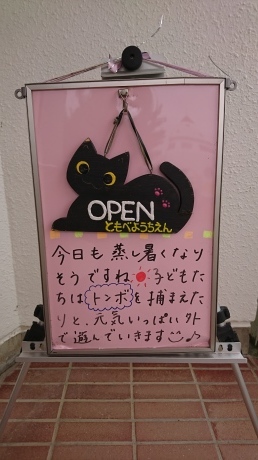 OPEN
ともべようちえん
今日も蒸し暑くなり
そうですね 子どもた
ちは トンボを捕まえた
りと、元気いっぱい外
で遊んでいきます